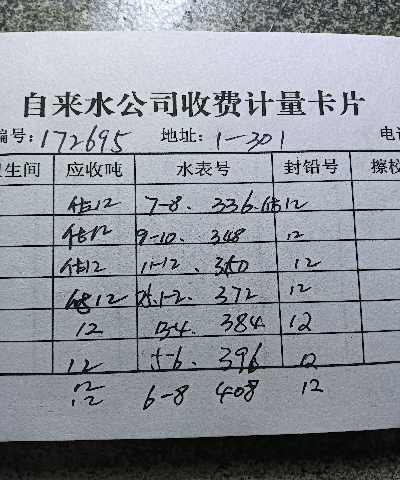 自来水公司收费计量卡片
编号: 172695 地址: 1-301 电话
卫生间 应收吨 水表号 封铅号 擦校
估12 7-8. 336. 估12
估12 9-10. 348 12
估12 11-12. 360 12
估12 25.1-2. 372 12
12 3-4. 384 12
12 5-6. 396 12
12 6-8 408 12